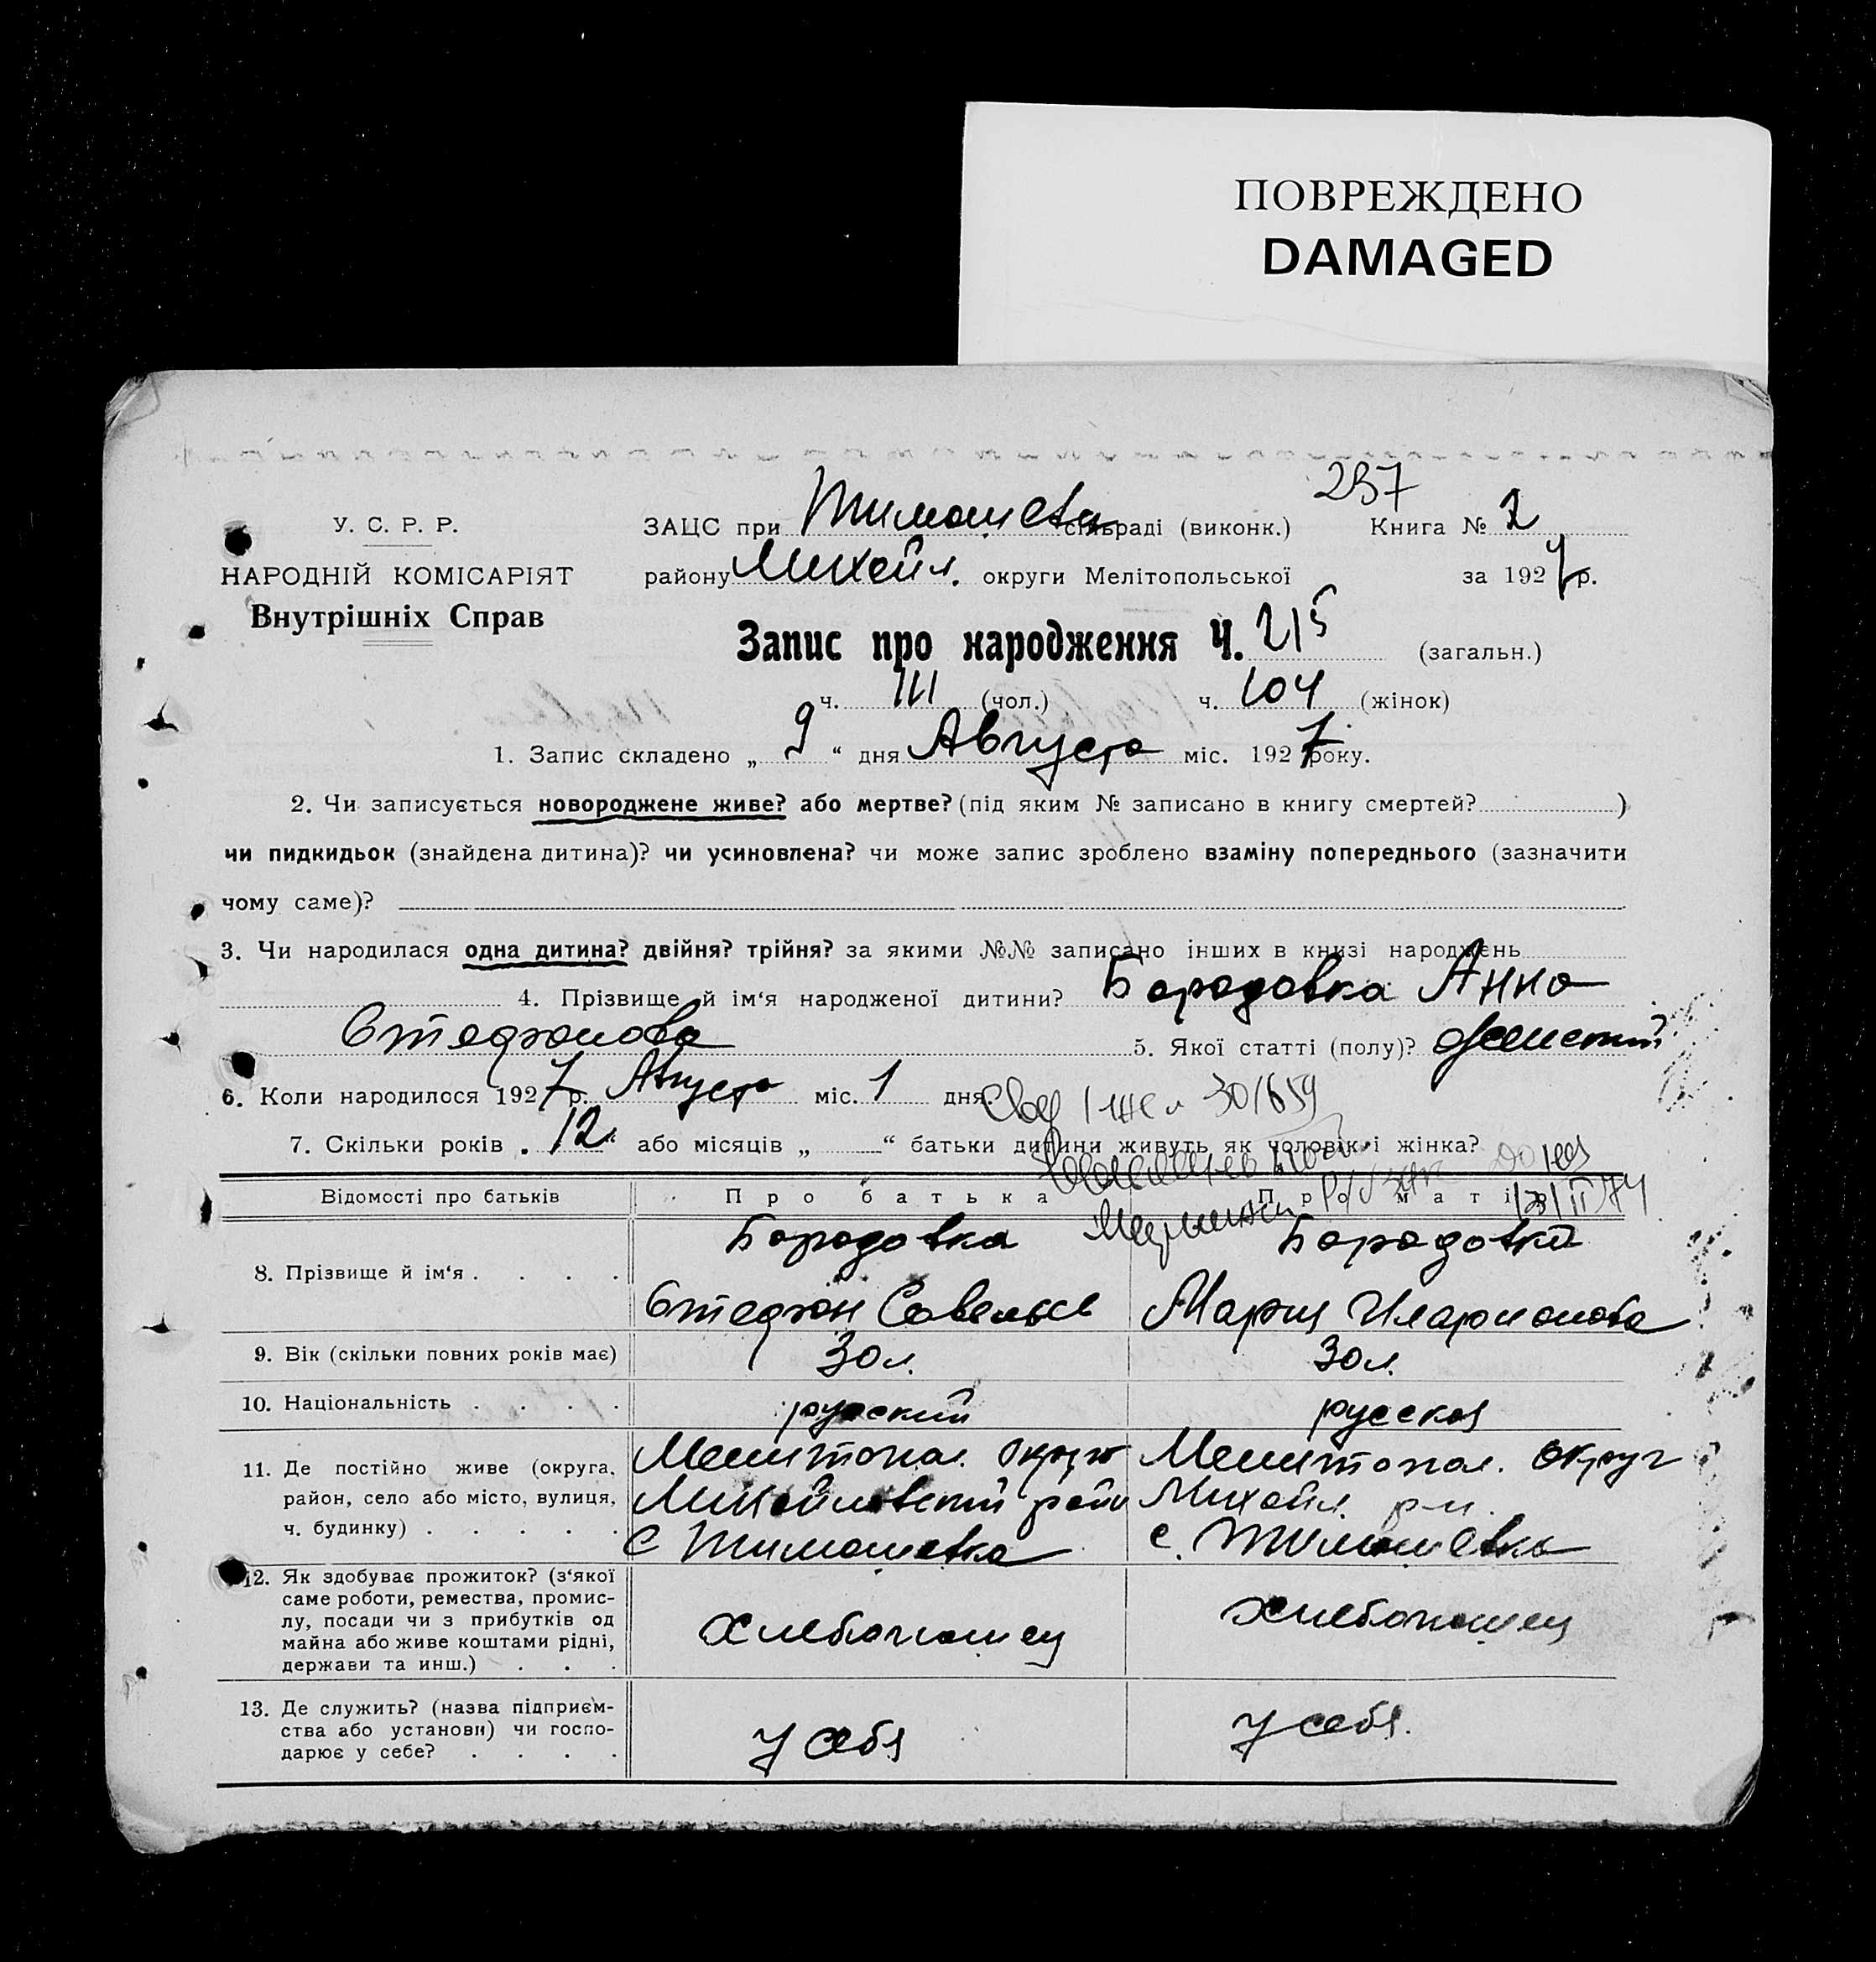 ПОВРЕЖДЕНО
DAMAGED
237
У. С. Р. Р.
НАРОДНІЙ КОМІСАРІЯТ
Внутрішніх Справ
ЗАЦС при Тимошевк сільраді (виконк.) Книга № 2
району Михайл. округи Мелітопольської за 1927 р.
Запис про народження Ч. 215 (загальн.)
ч. 111 (чол.) ч. 104 (жінок)
1. Запис складено „ 9 “ дня Августа міс. 1927 року.
2. Чи записується новороджене живе? або мертве? (під яким № записано в книгу смертей? )
чи пидкидьок (знайдена дитина)? чи усиновлена? чи може запис зроблено взаміну попереднього (зазначити
чому саме)?
3. Чи народилася одна дитина? двійня? трійня? за якими №№ записано інших в книзі народжень
4. Прізвище й ім‘я народженої дитини? Бородовка Анна
Стефанова 5. Якої статті (полу)? женский
6. Коли народилося 1927 р. Августа міс. 1 дня.
30/659
7. Скільки років „ 12 “ або місяців „ “ батьки дитини живуть як чоловік і жінка?
Відомості про батьків Про батька Про матір
8. Прізвище й ім‘я . . . . Бородовка Бородовка
Стефан Савельев Мария Иларионова
9. Вік (скільки повних років має) 30 л. 30 л.
10. Національність . . . . русский русская
11. Де постійно живе (округа, район, село або місто, вулиця, ч. будинку) . . . . .
Мелитопол. округ Мелитопол. округ
Михайловский район Михайл. р-н.
с Тимошевка с. Тимошевка
12. Як здобуває прожиток? (з‘якої
саме роботи, ремества, промис-
лу, посади чи з прибутків од
майна або живе коштами рідні,
держави та инш.) . . .
хлебопашец хлебопашец
13. Де служить? (назва підприєм-
ства або установи) чи госпо-
дарює у себе? . . . .
у себя у себя.